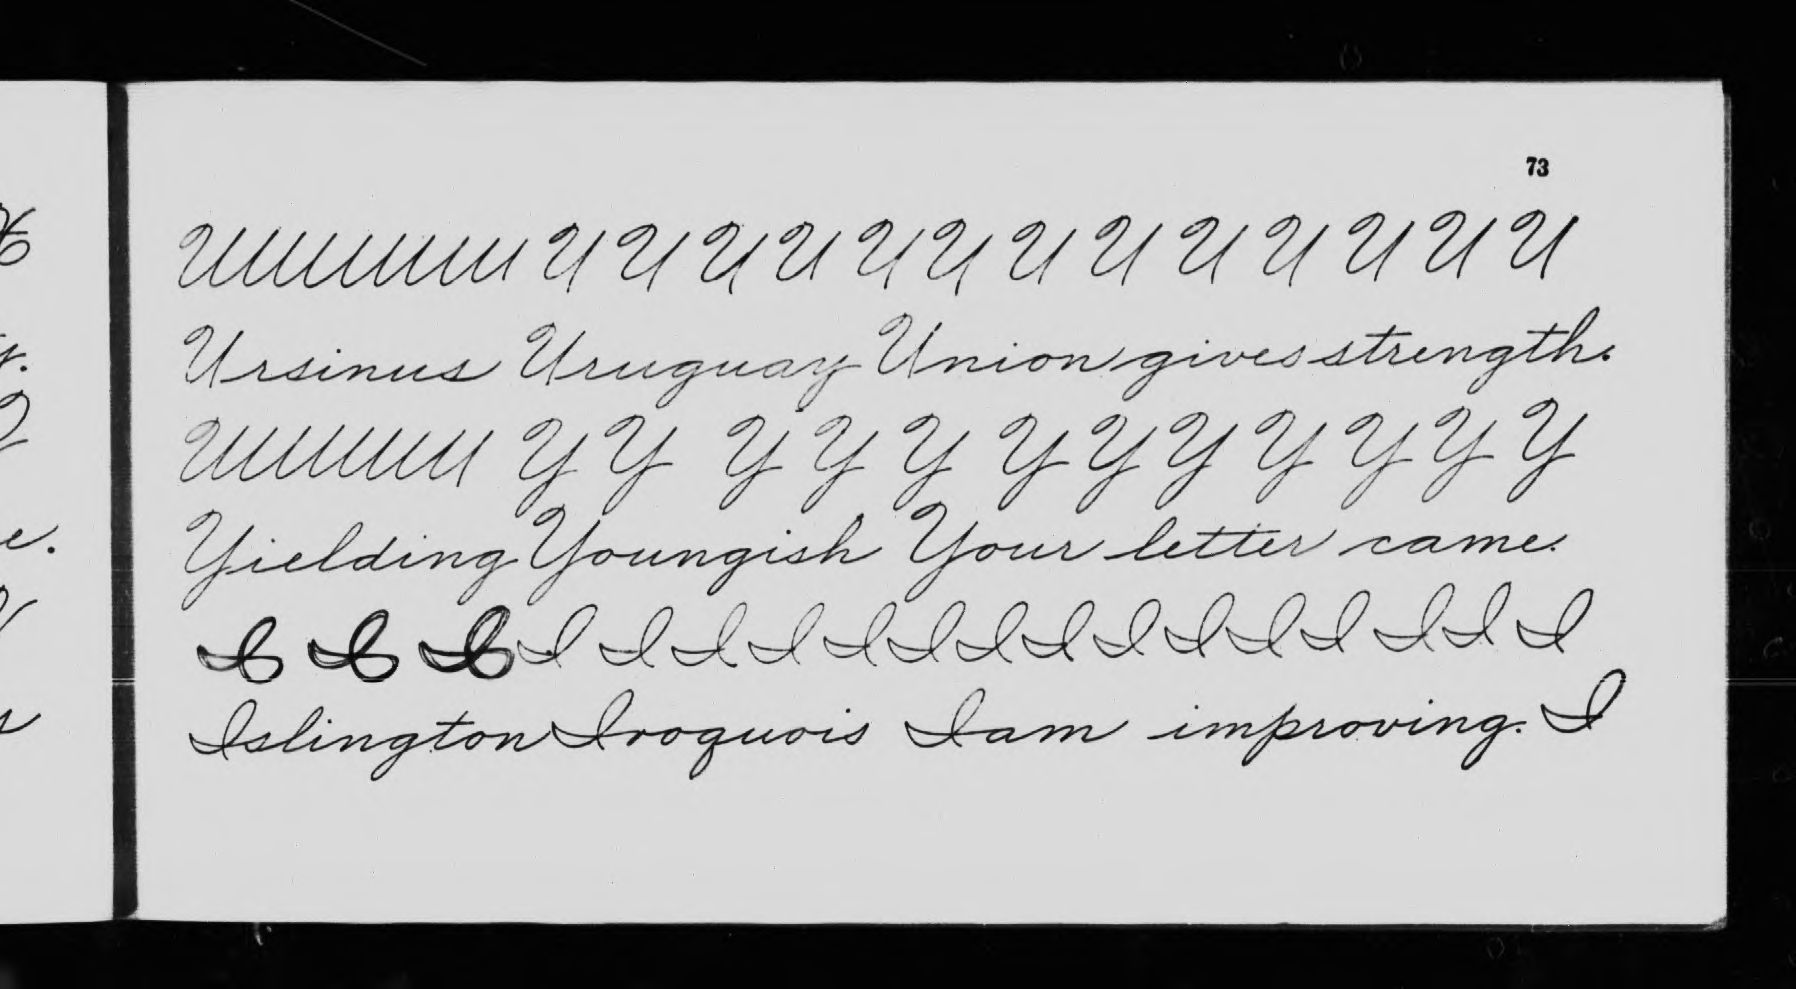 73
U U U U U U U U U U U U U
Ursinus Uruguay Union gives strength.
Y Y Y Y Y Y Y Y Y Y Y Y
Yielding Youngish Your letter came.
I I I I I I I I I I I I I I I I I I
Islington Iroquois I am improving. I